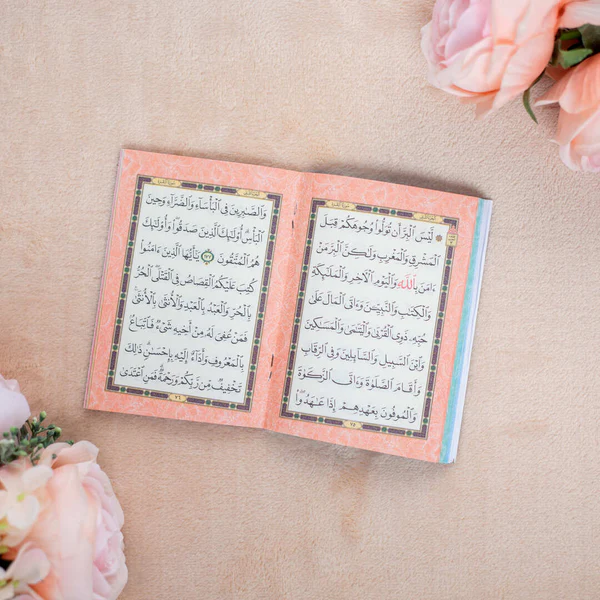 لَّيْسَ ٱلْبِرَّ أَن تُوَلُّوا۟ وُجُوهَكُمْ قِبَلَ
ٱلْمَشْرِقِ وَٱلْمَغْرِبِ وَلَـٰكِنَّ ٱلْبِرَّ مَنْ
ءَامَنَ بِٱللَّهِ وَٱلْيَوْمِ ٱلْـَٔاخِرِ وَٱلْمَلَـٰٓئِكَةِ
وَٱلْكِتَـٰبِ وَٱلنَّبِيِّـۧنَ وَءَاتَى ٱلْمَالَ عَلَىٰ
حُبِّهِۦ ذَوِى ٱلْقُرْبَىٰ وَٱلْيَتَـٰمَىٰ وَٱلْمَسَـٰكِينَ
وَٱبْنَ ٱلسَّبِيلِ وَٱلسَّآئِلِينَ وَفِى ٱلرِّقَابِ
وَأَقَامَ ٱلصَّلَوٰةَ وَءَاتَى ٱلزَّكَوٰةَ
وَٱلْمُوفُونَ بِعَهْدِهِمْ إِذَا عَـٰهَدُوا۟
وَٱلصَّـٰبِرِينَ فِى ٱلْبَأْسَآءِ وَٱلضَّرَّآءِ وَحِينَ
ٱلْبَأْسِ أُو۟لَـٰٓئِكَ ٱلَّذِينَ صَدَقُوا۟ وَأُو۟لَـٰٓئِكَ
هُمُ ٱلْمُتَّقُونَ ١٧٧ يَـٰٓأَيُّهَا ٱلَّذِينَ ءَامَنُوا۟
كُتِبَ عَلَيْكُمُ ٱلْقِصَاصُ فِى ٱلْقَتْلَى ٱلْحُرُّ
بِٱلْحُرِّ وَٱلْعَبْدُ بِٱلْعَبْدِ وَٱلْأُنثَىٰ بِٱلْأُنثَىٰ
فَمَنْ عُفِىَ لَهُۥ مِنْ أَخِيهِ شَىْءٌ فَٱتِّبَاعٌۢ
بِٱلْمَعْرُوفِ وَأَدَآءٌ إِلَيْهِ بِإِحْسَـٰنٍ ذَٰلِكَ
تَخْفِيفٌ مِّن رَّبِّكُمْ وَرَحْمَةٌ فَمَنِ ٱعْتَدَىٰ